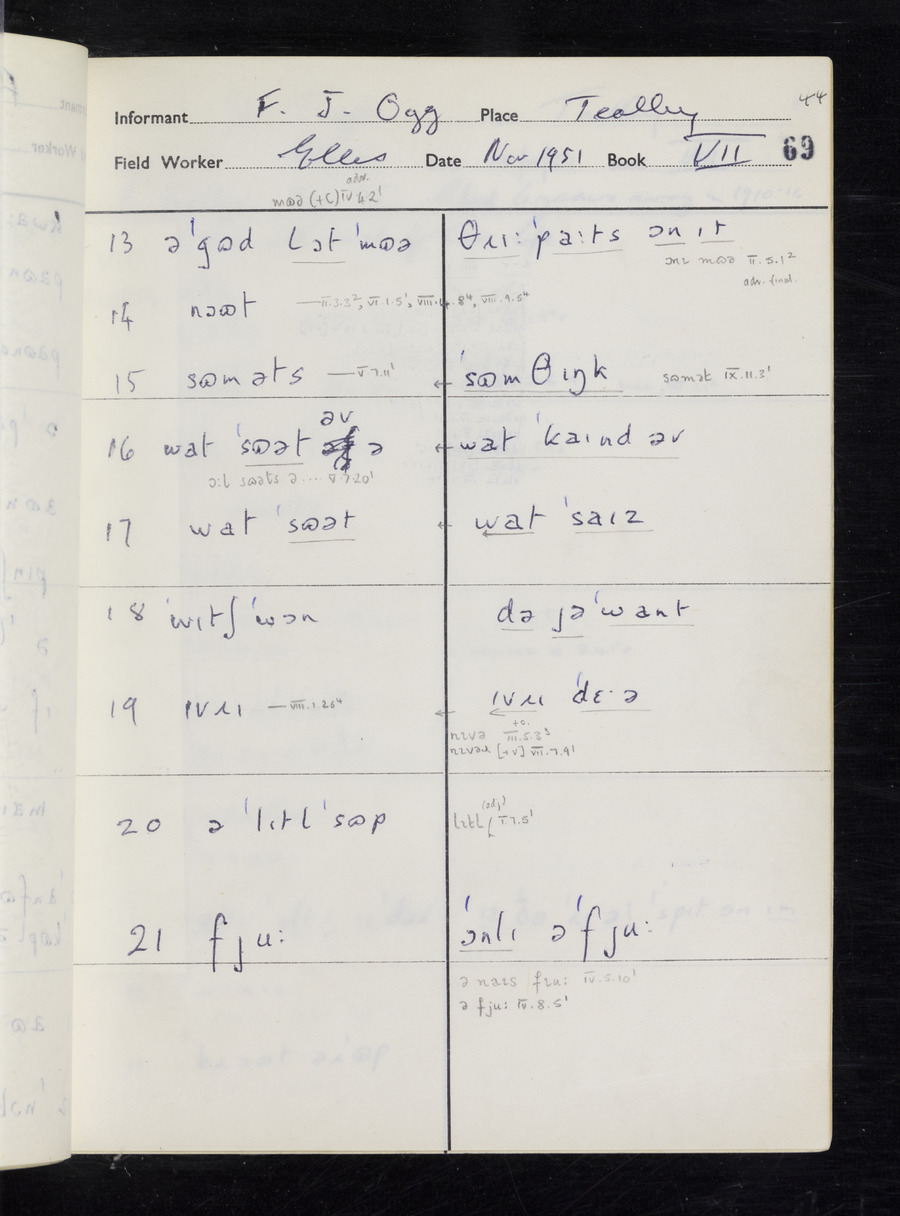 44
Informant F. J. Ogg Place Tealby
Field Worker Ellis Date Nov 1951 Book VII 69
adv.
mɷə (+C) IV 42¹
13 ə ˈgɷd lɔt ˈmɷə θɹiː ˈpaːɪts ɔn ɪt
ɔnɪ mɷə II.5.1² adv. final
14 nɔɷt — II.3.3², VI.1.5¹, VIII.4.8⁴, VIII.9.5⁴
15 sɷməts — V.7.11¹ ← ˈsɷmθɪŋk sɷmət IX.11.3¹
əv
16 wat ˈsɷət ə ← wat ˈkaɪnd əv
ɔːl sɷəts ə .... V.7.20¹
17 wat ˈsɷət ← wat ˈsaɪz
18 ˈwɪtʃ ˈwɔn də jə ˈwant
19 ɪvɹɪ — VIII.1.26⁴ ← ɪvɹɪ ˈdɛ·ə
+c.
nɪvə III.5.3³
nɪvəɹ [+V] VII.7.9¹
(adj)
20 ə ˈlɪtl ˈsɷp lɪtl V.7.5¹
21 fjuː ˈɔnlɪ ə ˈfjuː
ə naɪs fɪuː IV.5.10¹
ə fjuː IV.8.5¹